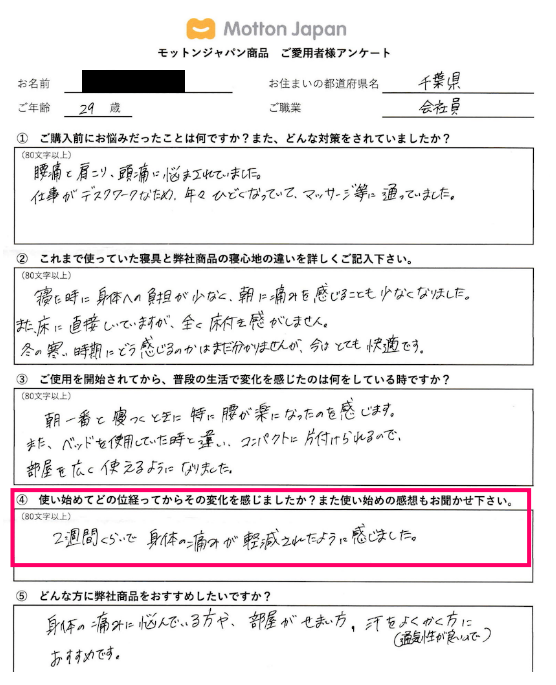 Motton Japan
モットンジャパン商品　ご愛用者様アンケート
お名前
お住まいの都道府県名 千葉県
ご年齢 29 歳
ご職業 会社員
① ご購入前にお悩みだったことは何ですか？また、どんな対策をされていましたか？
(80文字以上)
腰痛と肩こり、頭痛に悩まされていました。
仕事がデスクワークなため、年々ひどくなっていて、マッサージ等に通っていました。
② これまで使っていた寝具と弊社商品の寝心地の違いを詳しくご記入下さい。
(80文字以上)
寝た時に身体への負担が少なく、朝に痛みを感じることも少なくなりました。
また、床に直接しいていますが、全く床付き感がしません。
冬の寒い時期にどう感じるのかはまだ分かりませんが、今はとても快適です。
③ ご使用を開始されてから、普段の生活で変化を感じたのは何をしている時ですか？
(80文字以上)
朝一番と寝つくときに特に腰が楽になったのを感じます。
また、ベッドを使用していた時と違い、コンパクトに片付けられるので、
部屋を広く使えるようになりました。
④ 使い始めてどの位経ってからその変化を感じましたか？また使い始めの感想もお聞かせ下さい。
(80文字以上)
2週間くらいで身体の痛みが軽減されたように感じました。
⑤ どんな方に弊社商品をおすすめしたいですか？
身体の痛みに悩んでいる方や、部屋がせまい方、汗をよくかく方に
(通気性が良いので)
おすすめです。